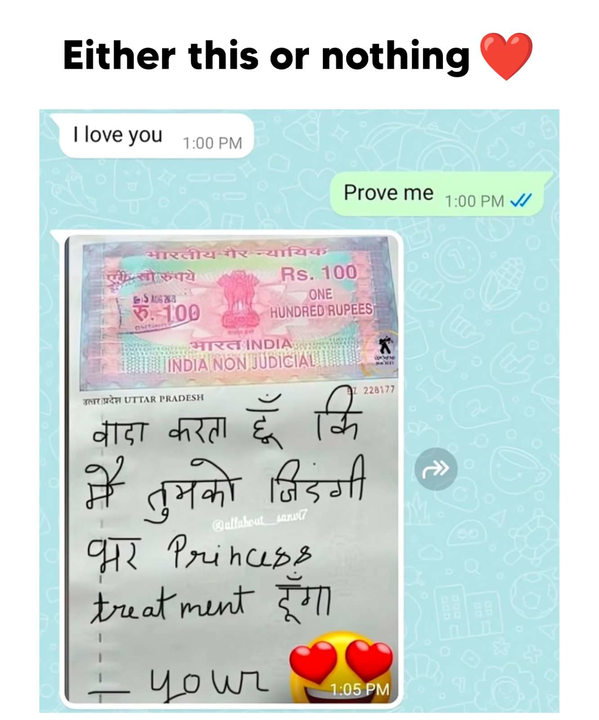 Either this or nothing ❤️
I love you 1:00 PM
Prove me 1:00 PM
भारतीय गैर न्यायिक
एक सौ रुपये
Rs. 100
रु. 100
ONE
HUNDRED RUPEES
भारत INDIA
INDIA NON JUDICIAL
उत्तर प्रदेश UTTAR PRADESH
228177
वादा करता हूँ कि
मैं तुमको जिंदगी
@allabout_sanvi7
भर Princess
treatment दूँगा
— your
1:05 PM